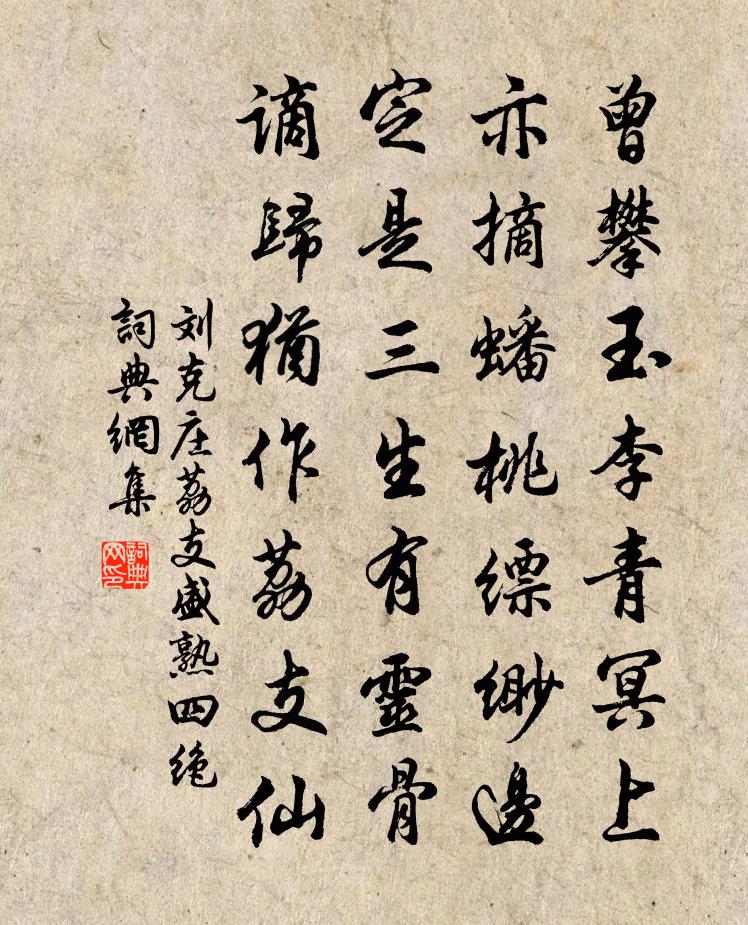 曾攀玉李青冥上
亦摘蟠桃缥缈邊
定是三生有靈骨
謫歸猶作荔支仙
刘克庄荔支盛熟四绝
詞典網集
詞典
网印